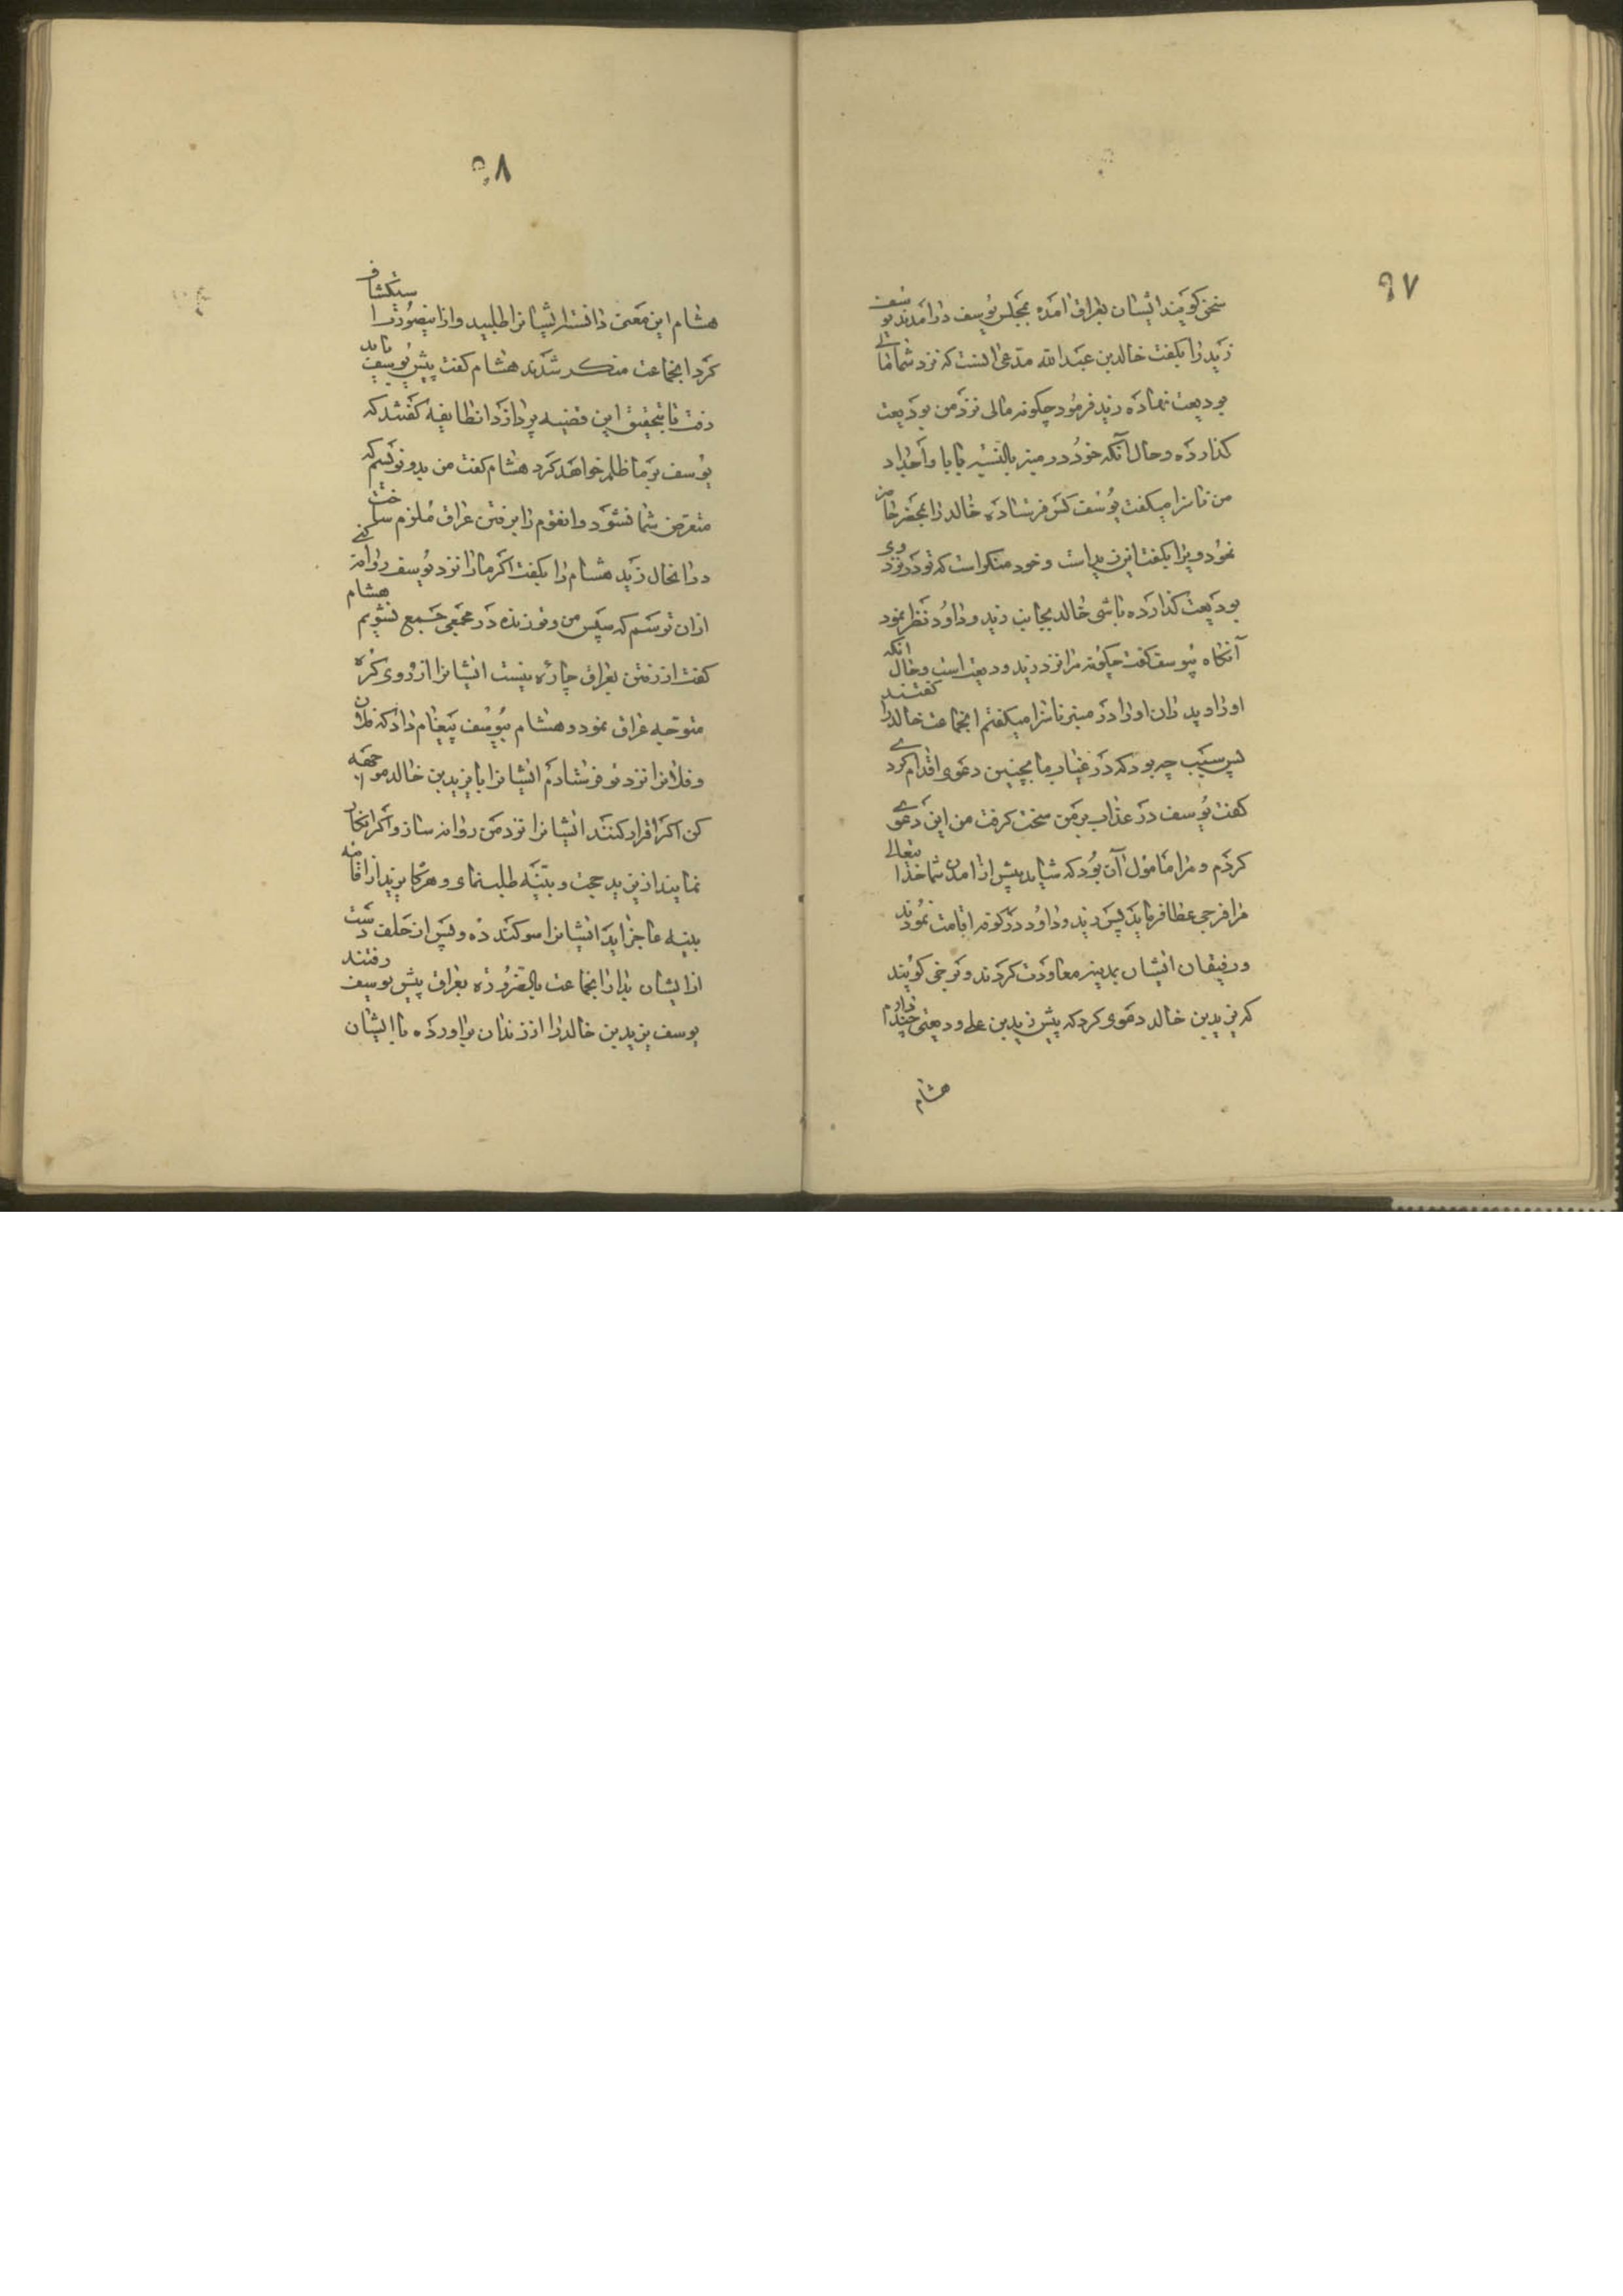 ٩٧
سخن گویند ایشان بعراق آمده بمجلس یوسف درآمدند یوسف
زید را بگفت خالد بن عبدالله مدعی است که نزد شما مالی
بودیعت نهاده زید فرمود چگونه مالی نزد من بودیعت
گذارده و حال آنکه خود در منبر بالنسبه بآبا و اجداد
من ناسزا میگفت یوسف کس فرستاده خالد را بمحضر حاضر
نمود ویرا بگفت این زید است و خود منکر است که تو در نزد وی
بودیعت گذارده باشی خالد بجانب زید و داود نظر نمود
آنگاه بیوسف گفت چگونه مرا نزد زید ودیعت است و حال آنکه
او را و پدران او را در منبر ناسزا میگفتم انجماعت خالد را گفتند
پس سبب چه بود که در غیاب ما بچنین دعوی اقدام کردی
گفت یوسف در عذاب بر من سخت گرفت من این دعوی
کردم و مرا مامول آن بود که شاید پیش از آمدن شما خدا یتعالی
مرا فرجی عطا فرماید پس زید و داود در کوفه اقامت نمودند
و رفیقان ایشان بمدینه معاودت کردند و برخی گویند
که یزید بن خالد دعوی کرد که پیش زید بن علی ودیعتی چند دارد
هشام
٩٨
هشام این معنی دانست ایشانرا طلبید و از اینصورت استکشاف
کرد انجماعت منکر شدند هشام گفت پیش یوسف باید
رفت تا بتحقیق این قضیه پردازد انطایفه گفتند که
یوسف بر ما ظلم خواهد کرد هشام گفت من بدو نویسم که
متعرض شما نشود و انقوم را برفتن عراق ملزم ساخت
در انحال زید هشام را بگفت اگر ما را نزد یوسف روانه کنی
از ان ترسم که سپس من و تو زنده در مجمعی جمع نشویم هشام
گفت از رفتن بعراق چاره نیست ایشانرا از روی کره
متوجه عراق نمود و هشام بیوسف پیغام داد که فلان
و فلانرا نزد تو فرستادم ایشانرا با یزید بن خالد مواجهه
کن اگر اقرار کنند ایشانرا نزد من روانه ساز و اگر انکار
نمایند از یزید حجت و بینه طلب نمای و هرگاه یزید از اقامه
بینه عاجز آید ایشانرا سوگند ده و پس از حلف دست
از ایشان بدار انجماعت بالضروره بعراق پیش یوسف رفتند
یوسف یزید بن خالد را از زندان برآورده با ایشان